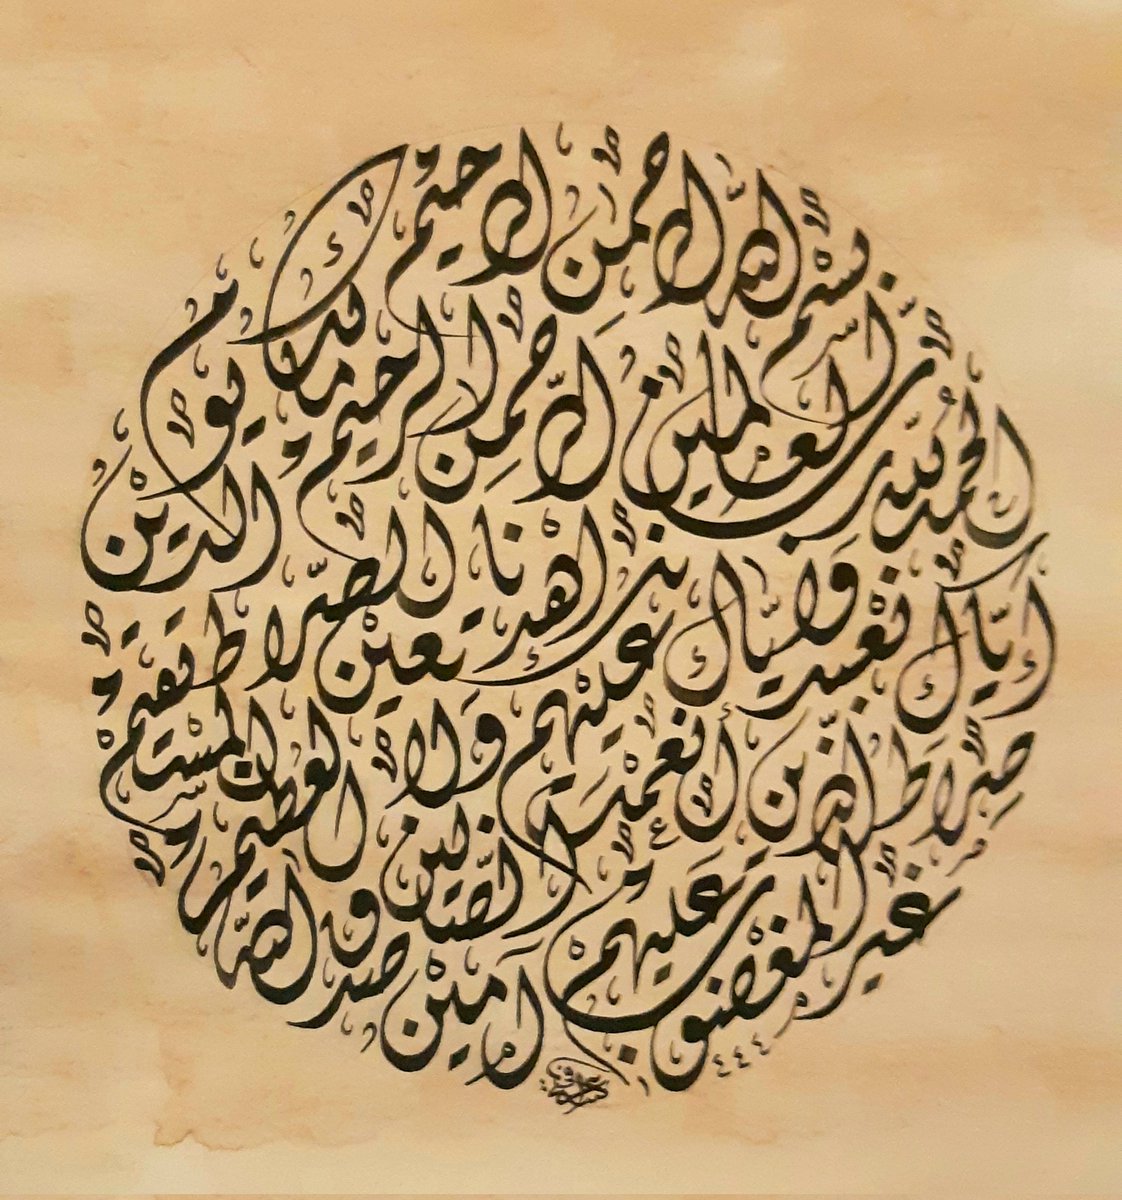 بسم الله الرحمن الرحيم
الحمد لله رب العالمين الرحمن الرحيم مالك يوم الدين
إياك نعبد وإياك نستعين اهدنا الصراط المستقيم
صراط الذين أنعمت عليهم
غير المغضوب عليهم ولا الضالين
آمين صدق الله العظيم
١٤٤٤